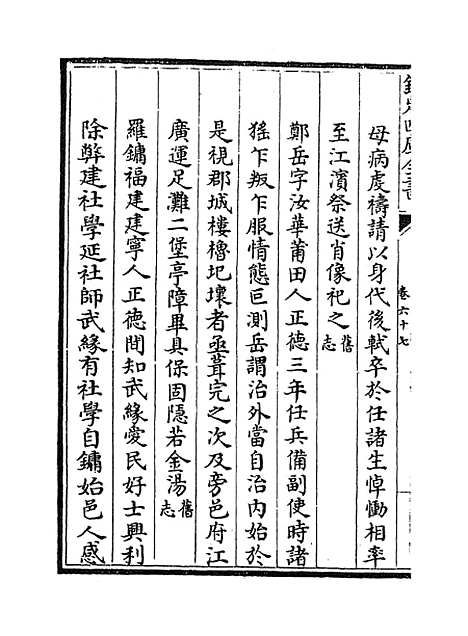 欽定四庫全書
卷六十七
母病虔禱請以身代後軾卒於任諸生悼慟相率
至江濱祭送肖像祀之舊志
鄭岳字汝華莆田人正德三年任兵備副使時諸
猺乍叛乍服情態叵測岳謂治外當自治内始於
是視郡城樓櫓圮壞者亟葺完之次及旁邑府江
廣運足灘二堡亭障畢具保固隱若金湯舊志
羅鏞福建建寧人正德間知武緣愛民好士興利
除弊建社學延社師武緣有社學自鏞始邑人感